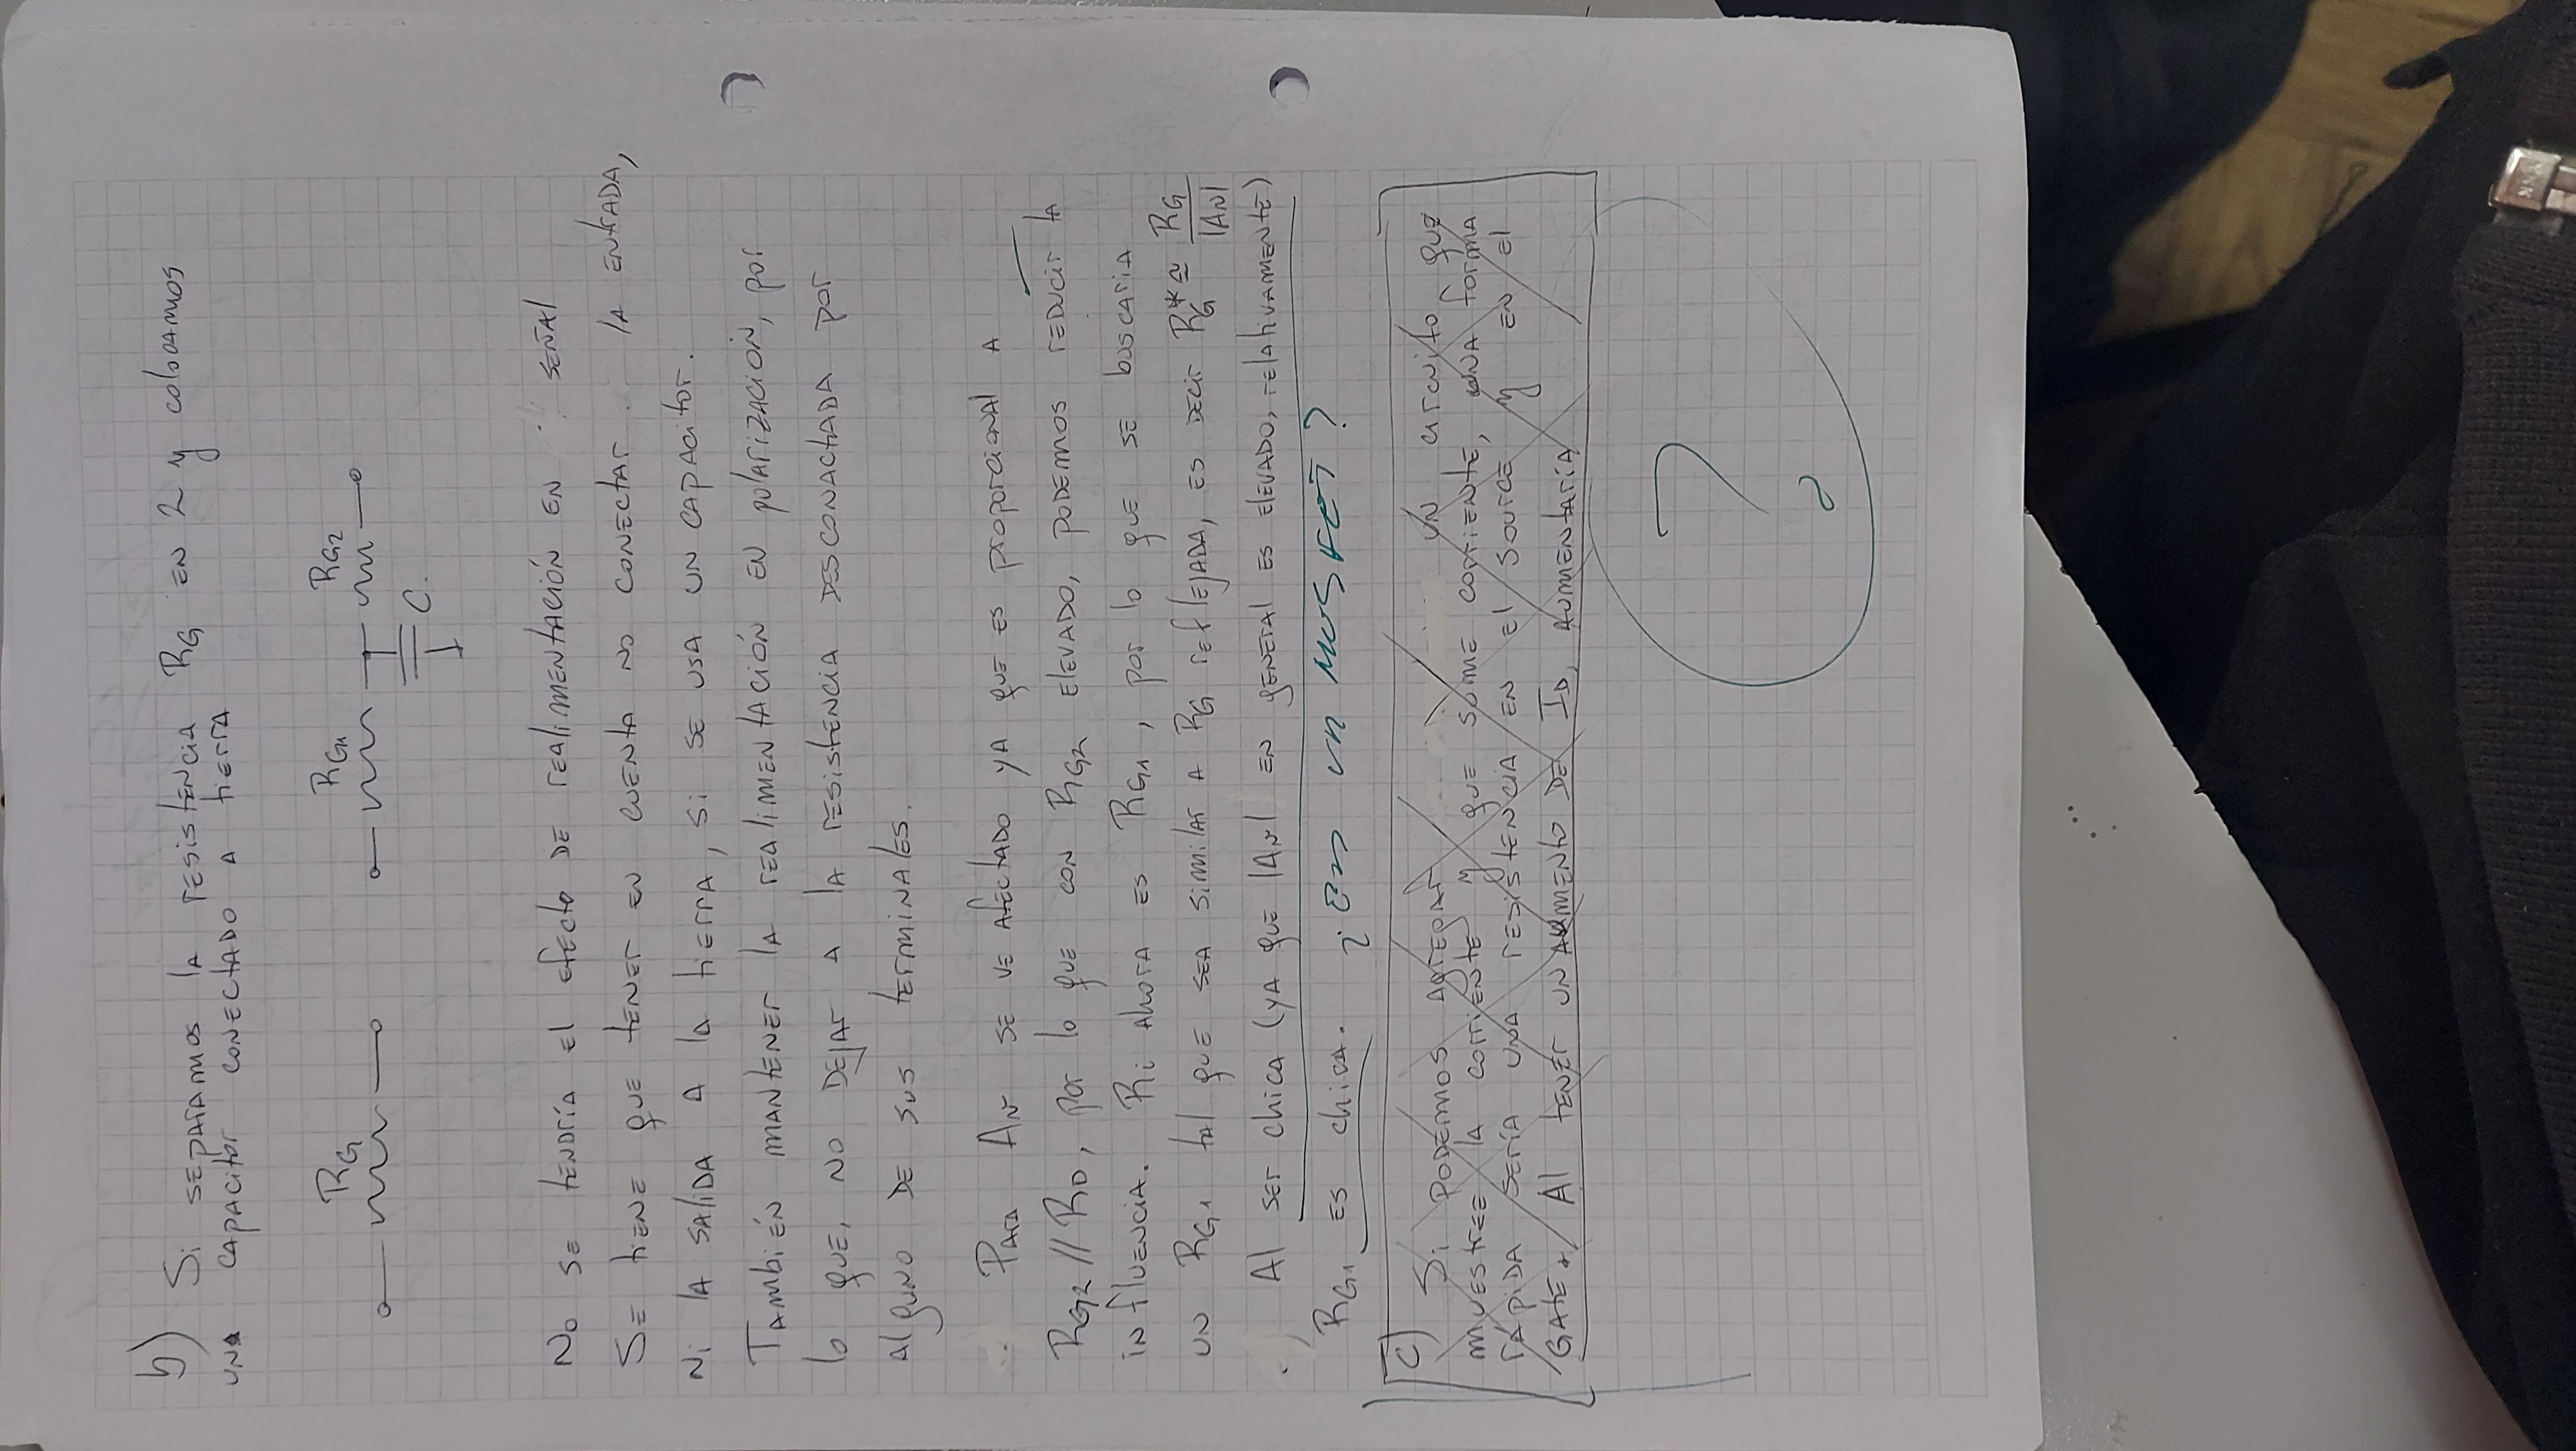 b) Si separamos la resistencia RG en 2 y colocamos
una capacitor conectado a tierra
RG
RG1 RG2
C.
No se tendría el efecto de realimentación en señal
Se tiene que tener en cuenta no conectar la entrada,
ni la salida a la tierra, si se usa un capacitor.
También mantener la realimentación en polarización, por
lo que, no dejar a la resistencia desconactada por
alguno de sus terminales.
Para Av se ve afectado ya que es proporcional a
RG2 // RD, por lo que con RG2 elevado, podemos reducir la
influencia. Ri ahora es RG1, por lo que se buscaria
un RG1 tal que sea similar a RG reflejada, es decir RG* ≅ RG / |Av|
Al ser chica (ya que |Av| en general es elevado, relativamente)
RG1 es chica. ¿En un MOSFET?
c) Si podemos agregar un circuito que
muestree la corriente y que sume corriente, una forma
rápida sería una resistencia en el source y en el
gate. Al tener un aumento de ID, aumentaría
?